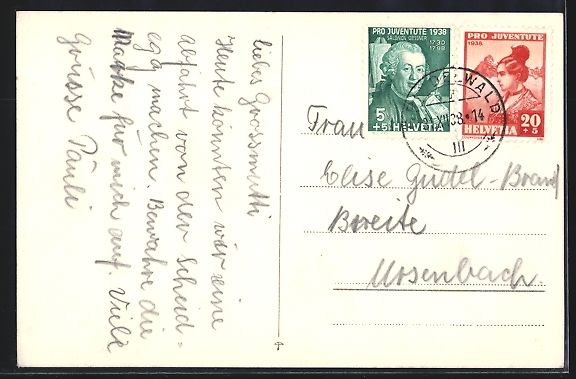 liebes Grossmutti
Heute könnten wir eine
abfahrt von der Scheid=
egg machen. Bewahre die
Marke für mich auf. Viele
Grüsse Päuli
PRO JUVENTUTE 1938
SALOMON GESSNER
1730
1788
5
+5 HELVETIA
PRO JUVENTUTE
1938
20
+5
HELVETIA
WALD
38•14
III
Frau
Elise Gudel-Brand
Breite
Ursenbach.